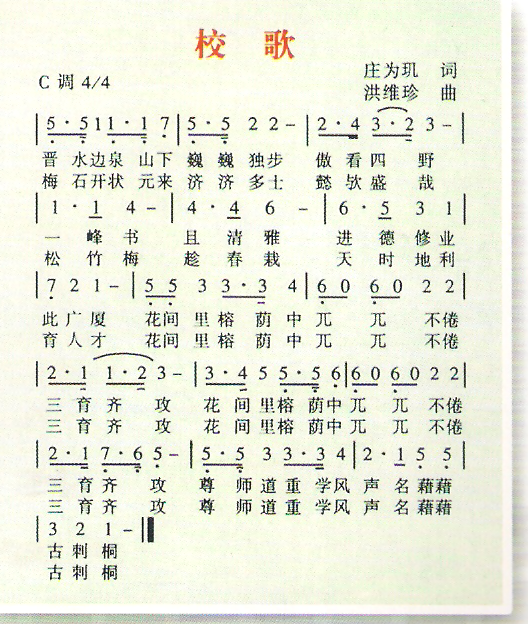 校 歌
C 调 4/4
庄为玑 词
洪维珍 曲
5·5 1 1 1·1 7 | 5·5 2 2 – | 2·4 3·2 3 – |
晋 水边泉 山下 巍 巍 独步 傲 看四 野
梅 石开状 元来 济 济 多士 懿欤盛 哉
1·1 4 – | 4·4 6 – | 6·5 3 1 |
一 峰书 且 清雅 进 德修业
松 竹梅 趁 春栽 天 时地利
7 2 1 – | 5 5 3 3·3 4 | 6 0 6 0 2 2 |
此广厦 花间 里榕 荫 中 兀 兀 不倦
育人才 花间 里榕 荫 中 兀 兀 不倦
2·1 1·2 3 – | 3·4 5 5·5 6 | 6 0 6 0 2 2 |
三 育 齐 攻 花 间 里榕 荫中 兀 兀 不倦
三 育 齐 攻 花 间 里榕 荫中 兀 兀 不倦
2·1 7·6 5 – | 5·5 3 3·3 4 | 2·1 5 5 |
三 育 齐 攻 尊 师 道 重 学风 声 名 藉藉
三 育 齐 攻 尊 师 道 重 学风 声 名 藉藉
3 2 1 –
古 刺 桐
古 刺 桐